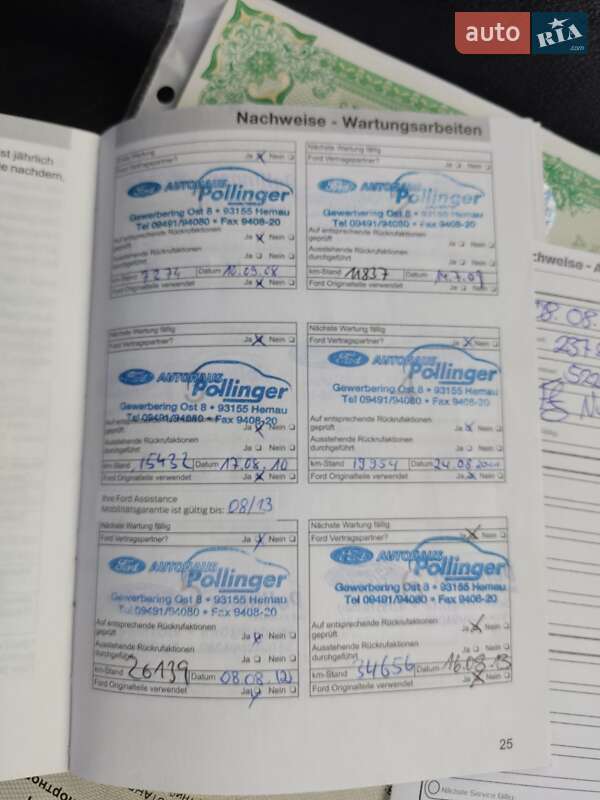 auto RIA .com
st jährlich
e nachdem.
Nachweise - Wartungsarbeiten
Ford Vertragspartner? Ja Nein
Ford AUTOHAUS
Pollinger
Gewerbering Ost 8 • 93155 Hemau
Tel 09491/94080 • Fax 9408-20
Auf entsprechende Rückrufaktionen
geprüft Ja Nein
Ausstehende Rückrufaktionen
durchgeführt Ja Nein
km-Stand 7274 Datum 10.09.08
Ford Originalteile verwendet Ja Nein
Nächste Wartung fällig
Ford Vertragspartner? Ja Nein
Ford AUTOHAUS
Pollinger
Gewerbering Ost 8 • 93155 Hemau
Tel 09491/94080 • Fax 9408-20
Auf entsprechende Rückrufaktionen
geprüft Ja Nein
Ausstehende Rückrufaktionen
durchgeführt Ja Nein
km-Stand 11837 Datum 7.09
Ford Originalteile verwendet Ja Nein
Nächste Wartung fällig
Ford Vertragspartner? Ja Nein
Ford AUTOHAUS
Pollinger
Gewerbering Ost 8 • 93155 Hemau
Tel 09491/94080 • Fax 9408-20
Auf entsprechende Rückrufaktionen
geprüft Ja Nein
Ausstehende Rückrufaktionen
durchgeführt Ja Nein
km-Stand 15432 Datum 17.08.10
Ford Originalteile verwendet Ja Nein
Ihre Ford Assistance
Mobilitätsgarantie ist gültig bis: 08/13
Nächste Wartung fällig
Ford Vertragspartner? Ja Nein
Ford AUTOHAUS
Pollinger
Gewerbering Ost 8 • 93155 Hemau
Tel 09491/94080 • Fax 9408-20
Auf entsprechende Rückrufaktionen
geprüft Ja Nein
Ausstehende Rückrufaktionen
durchgeführt Ja Nein
km-Stand 19954 Datum 24.08.2011
Ford Originalteile verwendet Ja Nein
Nächste Wartung fällig
Ford Vertragspartner? Ja Nein
Ford AUTOHAUS
Pollinger
Gewerbering Ost 8 • 93155 Hemau
Tel 09491/94080 • Fax 9408-20
Auf entsprechende Rückrufaktionen
geprüft Ja Nein
Ausstehende Rückrufaktionen
durchgeführt Ja Nein
km-Stand 26139 Datum 08.08.12
Ford Originalteile verwendet Ja Nein
Nächste Wartung fällig
Ford Vertragspartner? Ja Nein
Ford AUTOHAUS
Pollinger
Gewerbering Ost 8 • 93155 Hemau
Tel 09491/94080 • Fax 9408-20
Auf entsprechende Rückrufaktionen
geprüft Ja Nein
Ausstehende Rückrufaktionen
durchgeführt Ja Nein
km-Stand 34656 Datum 16.08.13
Ford Originalteile verwendet Ja Nein
25
chweise - A
8.08.
Nächste Service fällig